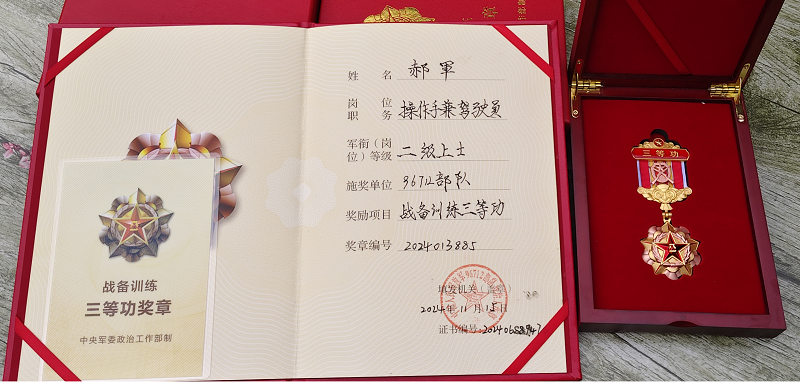 战备训练
三等功奖章
中央军委政治工作部制
姓 名 郝軍
岗 位
职 务 操作手兼驾驶员
军衔（岗
位）等级 二级上士
施奖单位 96712部队
奖励项目 战备训练三等功
奖章编号 2024013885
填发机关（
2024年11月15日
证书编号:
三等功
章